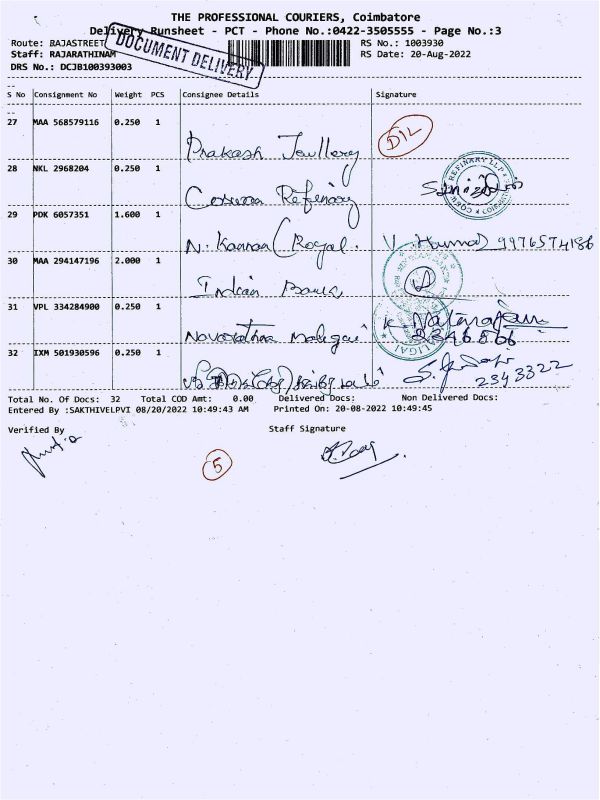 THE PROFESSIONAL COURIERS, Coimbatore
Delivery Runsheet - PCT - Phone No.:0422-3505555 - Page No.:3
Route: RAJASTREET
RS No.: 1003930
Staff: RAJARATHINAM
RS Date: 20-Aug-2022
DRS No.: DCJB100393003
DOCUMENT DELIVERY
S No Consignment No Weight PCS Consignee Details Signature
27 MAA 568579116 0.250 1
Prakash Jewllery D/L
28 NKL 2968204 0.250 1
Refinary REFINARY LLP
29 PDK 6057351 1.600 1
N. Kannan (Royal. V. 9976574186
30 MAA 294147196 2.000 1
Indian Bank
31 VPL 334284900 0.250 1
Navarathna Maligai K. Natarajan
2346866
32 IXM 501930596 0.250 1
2343322
Total No. Of Docs: 32 Total COD Amt: 0.00 Delivered Docs: Non Delivered Docs:
Entered By :SAKTHIVELPVI 08/20/2022 10:49:43 AM Printed On: 20-08-2022 10:49:45
Verified By Staff Signature
5